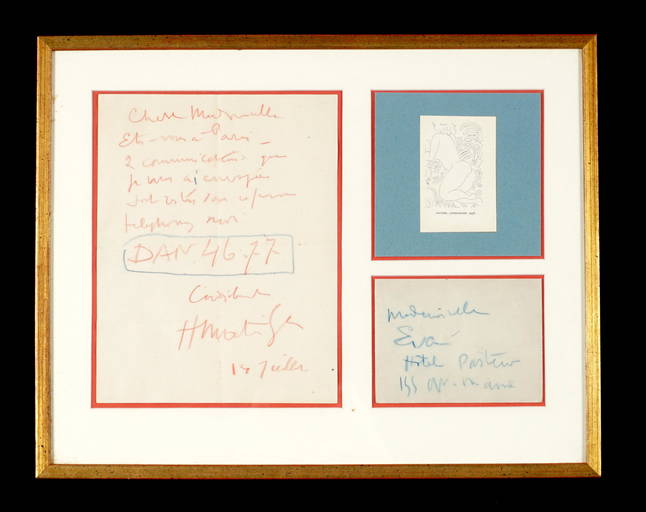 Chère Mademoiselle
Etes-vous à Paris -
2 communications que
je vous ai envoyées
sont restées sans réponse
telephonez moi
DAN 46.77
Cordialement
HMatisse
Mademoiselle
Eva
Hotel Pasteur
155 av. du Maine